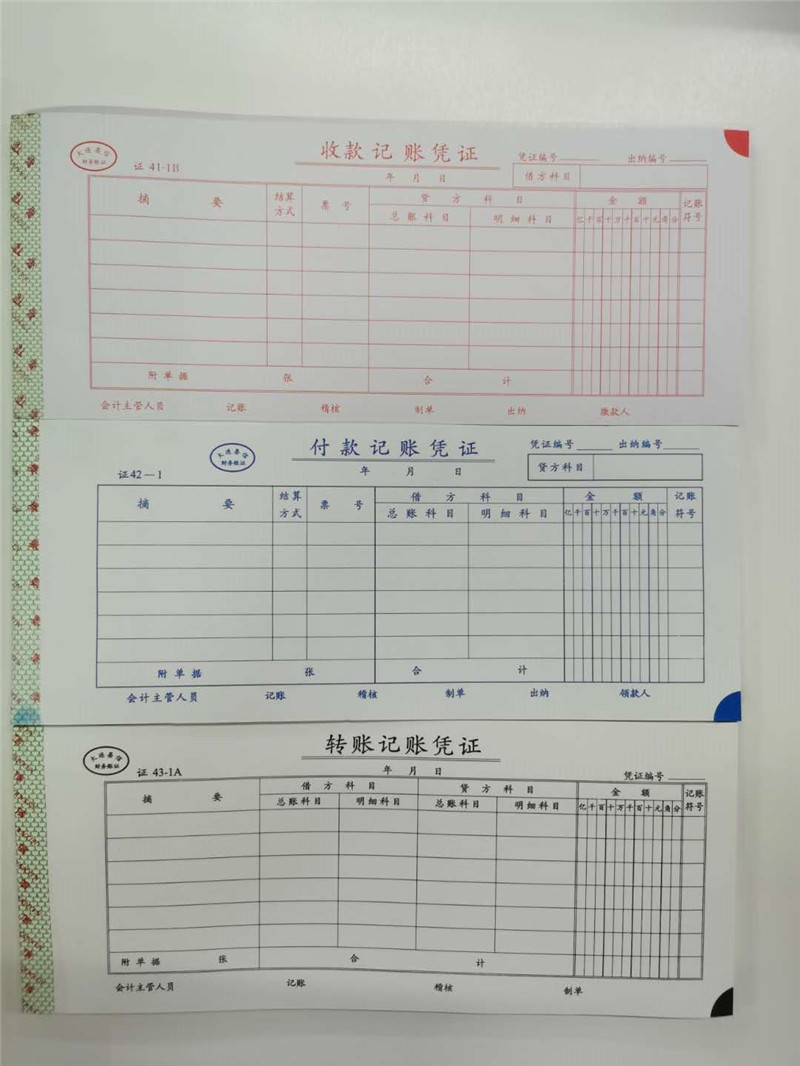 收款记账凭证
大连嘉信
财务账证
证 41-1B
年 月 日
凭证编号 出纳编号
借方科目
摘 要 结算方式 票 号 贷 方 科 目 金 额 记账符号
总账科目 明细科目 亿千百十万千百十元角分
附单据 张 合 计
会计主管人员 记账 稽核 制单 出纳 缴款人
付款记账凭证
大连嘉信
财务账证
证42—1
年 月 日
凭证编号 出纳编号
贷方科目
摘 要 结算方式 票 号 借 方 科 目 金 额 记账符号
总账科目 明细科目 亿千百十万千百十元角分
附单据 张 合 计
会计主管人员 记账 稽核 制单 出纳 领款人
转账记账凭证
大连嘉信
财务账证
证 43-1A
年 月 日
凭证编号
摘 要 借 方 科 目 贷 方 科 目 金 额 记账符号
总账科目 明细科目 总账科目 明细科目 亿千百十万千百十元角分
附单据 张 合 计
会计主管人员 记账 稽核 制单